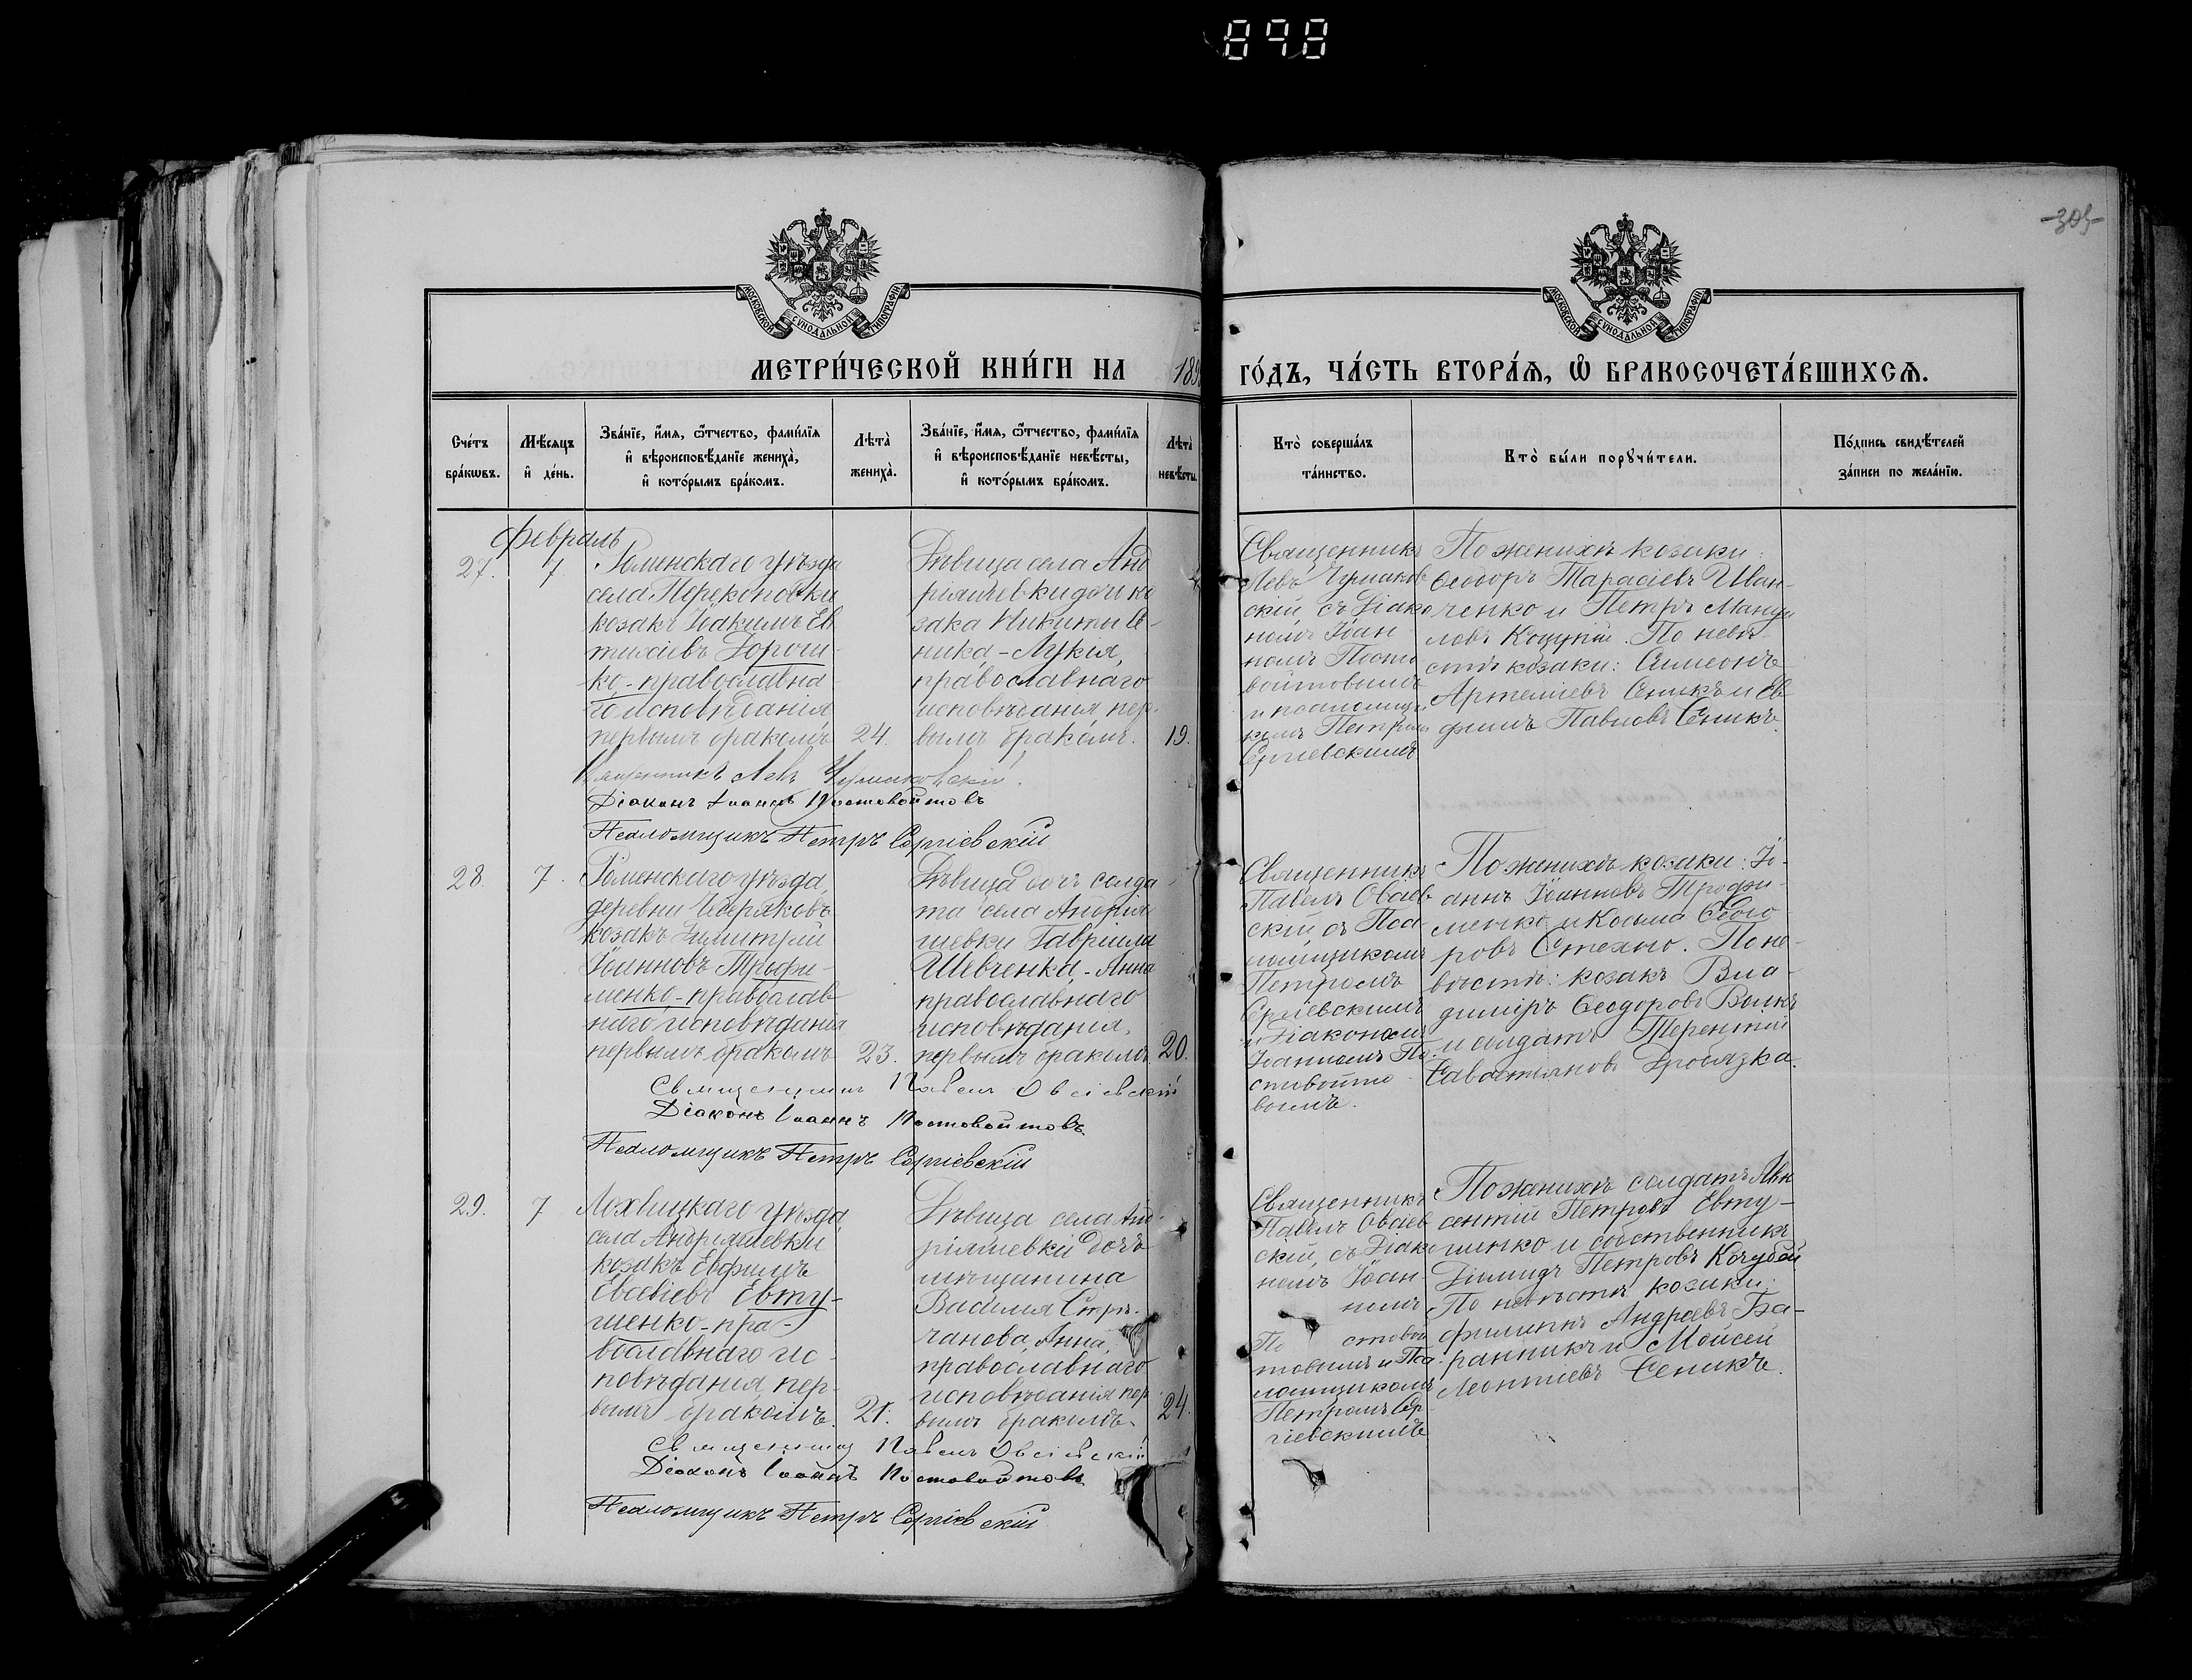 898
-305-
МОСКОВСКОЙ СѴНОДАЛЬНОЙ ТИПОГРАФІИ
МОСКОВСКОЙ СѴНОДАЛЬНОЙ ТИПОГРАФІИ
МЕТРИ́ЧЕСКОЙ КНИ́ГИ НА 189
ГО́ДЪ, ЧА́СТЬ ВТОРА́Я, Ѡ҆ БРАКОСОЧЕТА́ВШИХСЯ.
Сче́тъ
бра́кѡвъ.
Мѣ́сяцъ
и҆ де́нь.
Зва́нїе, и҆́мя, ѻ҆́тчество, фами́лїя
и҆ вѣроисповѣ́данїе жениха̀,
и҆ кото́рымъ бра́комъ.
Лѣ́та̀
жениха̀.
Зва́нїе, и҆́мя, ѻ҆́тчество, фами́лїя
и҆ вѣроисповѣ́данїе невѣ́сты,
и҆ кото́рымъ бра́комъ.
Лѣ́та̀
невѣ́сты.
Кто̀ соверша́лъ
та́инство.
Кто̀ бы́ли порꙋчи́тели.
По́дпись свидѣ́телей
за́писи по жела́нїю.
Февраль
27. 7
Роменскаго уѣзда
села Перекоповки
козакъ Іоакимъ Ев
тихіевъ Дорош-
ко - православна-
го исповѣданія
первымъ бракомъ 24.
Дѣвица села Анд
ріяшевки дочь ко
зака Никиты Се-
ника - Лукія,
православнаго
исповѣданія пер-
вымъ бракомъ. 19.
Священникъ
Левъ Чумаков
скій съ Діако
номъ Іоан-
номъ Посто
войтовымъ
и псаломщи
комъ Петромъ
Сергіевскимъ
По женихѣ козаки:
Ѳеодоръ Тарасіевъ Иван-
ченко и Петръ Мануи
ловъ Коцупій. По невѣ-
стѣ козаки: Симеонъ
Артеміевъ Сеникъ и Ев
фимъ Павловъ Сеникъ.
Священникъ Левъ Чумаковскій.
Діаконъ Іоаннъ Постовойтовъ
Псаломщикъ Петръ Сергіевскій
28. 7.
Роменскаго уѣзда,
деревни
козакъ Димитрій
Іоанновъ Трофи-
менко - православ
наго исповѣданія
первымъ бракомъ 23.
Дѣвица дочь солда-
та села Андрія
шевки Гавріила
Шевченка - Анна
православнаго
исповѣданія,
первымъ бракомъ 20.
Священникъ
Павелъ Овсіев
скій съ Пса
ломщикомъ
Петромъ
Сергіевскимъ
и Діакономъ
Іоанномъ По-
стовойто
вымъ.
По женихѣ козаки: Іо-
аннъ Іоанновъ Трофи-
менко и Косма Ѳеодо
ровъ Стехно. По не-
вѣстѣ: козакъ Вла-
диміръ Ѳеодоровъ Волкъ
и солдатъ Терентій
Савостьяновъ Дробязка.
Священникъ Павелъ Овсіевскій
Діаконъ Іоаннъ Постовойтовъ
Псаломщикъ Петръ Сергіевскій
29. 7
Лохвицкаго уѣзда,
села Андріяшевки
козакъ Евфимъ
Евсевіевъ Евту-
шенко - пра-
вославнаго ис-
повѣданія, пер-
вымъ бракомъ. 21.
Дѣвица села Анд-
ріяшевки дочь
мѣщанина
Василія Стри-
чанова, Анна,
православнаго
исповѣданія пер-
вымъ бракомъ. 24.
Священникъ
Павелъ Овсіев
скій, съ Діако
номъ Іоан-
номъ
По стовой
товымъ и Пса
ломщикомъ
Петромъ Сер
гіевскимъ
По женихѣ солдатъ Авк
сентій Петровъ Евту-
шенко и собственникъ
Діомидъ Петровъ Кочубей
По невѣстѣ козаки:
Филиппъ Андреевъ Ба-
ранникъ и Моисей
Леонтіевъ Сеникъ.
Священникъ Павелъ Овсіевскій
Діаконъ Іоаннъ Постовойтовъ
Псаломщикъ Петръ Сергіевскій